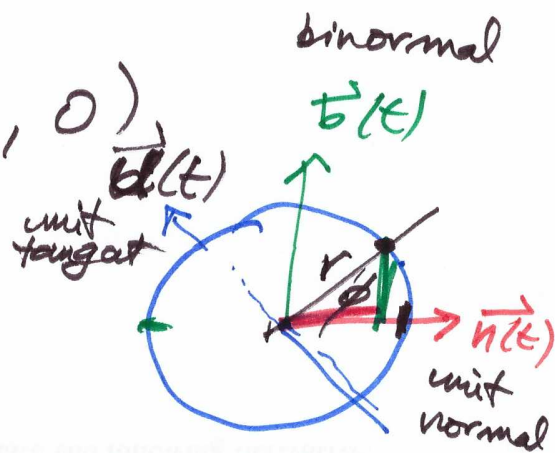 binormal
b(t)
, 0)
unit
tangat
r
φ
n(t)
unit
normal